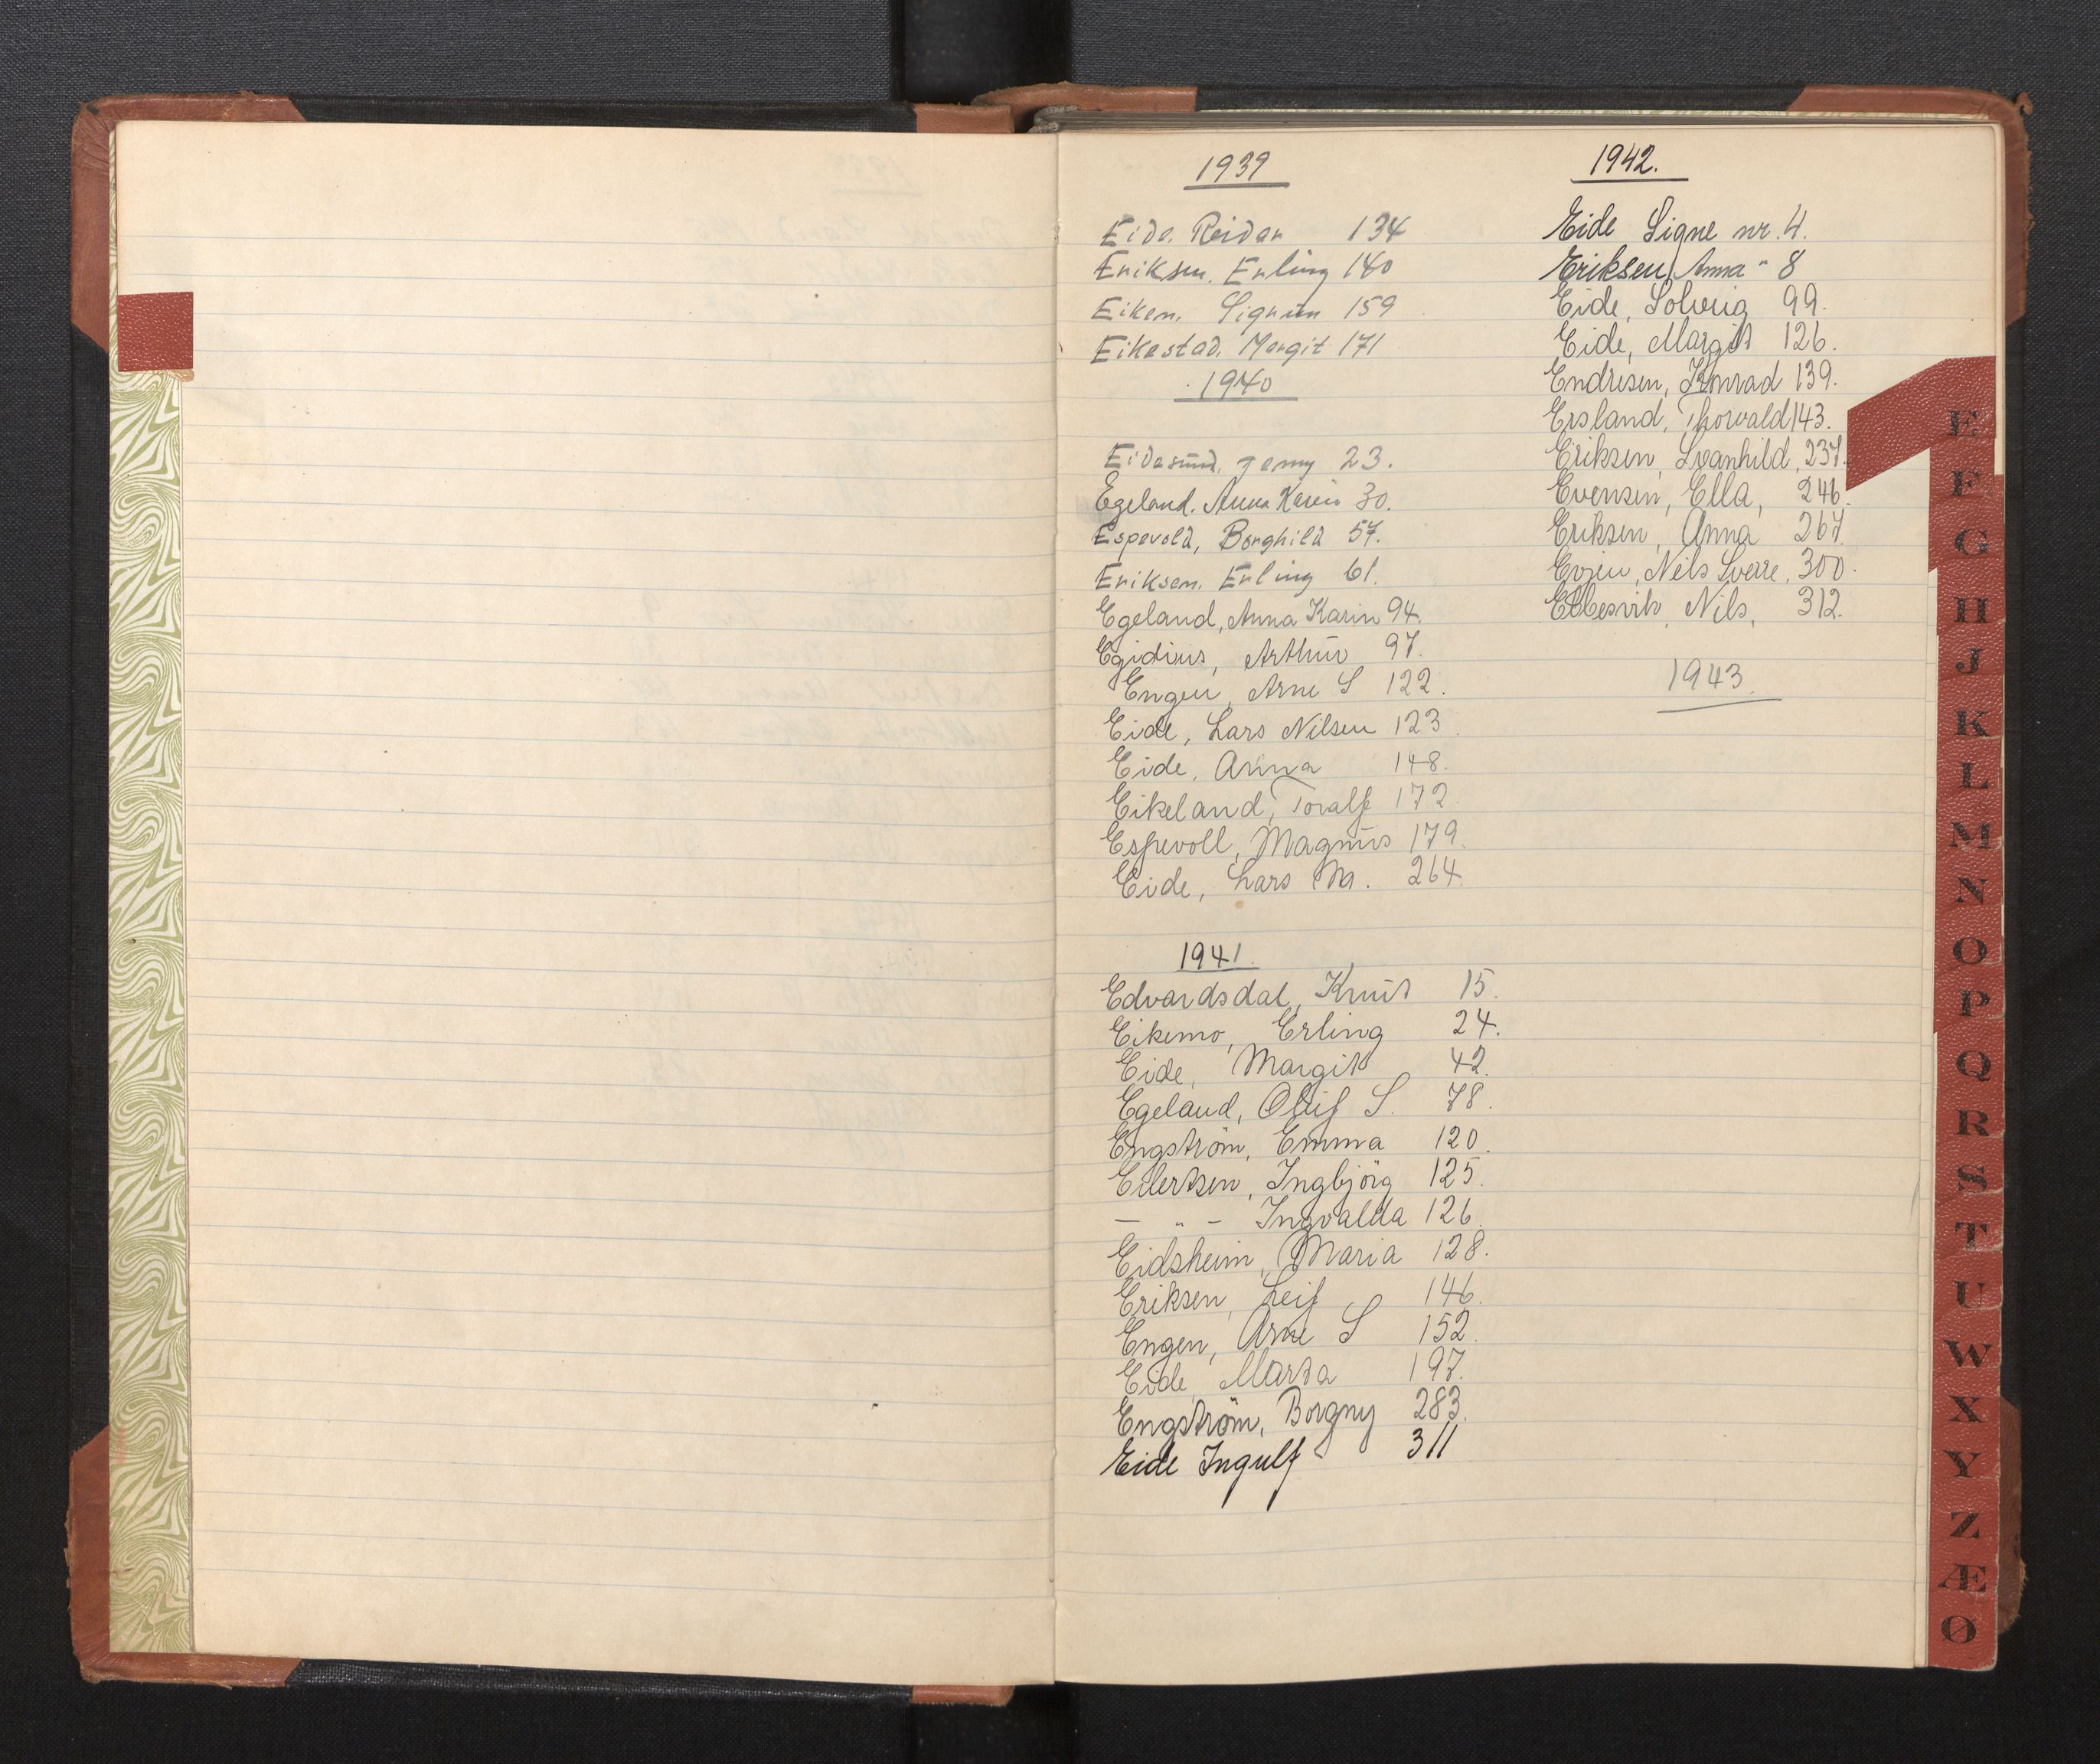 1939
Eide. Reidar 134
Eriksen. Erling 140
Eiken. Sigrun 159
Eikestad. Margit 171
1940
Eidesund. Jenny 23.
Egeland. Anna Karin 30.
Espevold, Borghild 57.
Eriksen. Erling 61.
Egeland, Anna Karin 94.
Egidius, Arthur 97.
Engen, Arne S 122.
Eide, Lars Nilsen 123
Eide, Anna 148.
Eikeland, Toralf 172.
Espevoll, Magnus 179.
Eide, Lars M. 264.
1941.
Edvardsdal, Knut 15.
Eikemo, Erling 24.
Eide, Margit 42.
Egeland, Oluf S. 78.
Engström, Emma 120.
Eilertsen, Ingbjörg 125.
— " — Ingvalda 126.
Eidsheim, Maria 128.
Eriksen, Leif 146.
Engen, Arne S 152.
Eide, Marta 197.
Engström, Borgny 283.
Eide Ingulf 311
1942.
Eide Signe nr. 4.
Eriksen, Anna " 8
Eide, Solveig 99.
Eide, Margit 126.
Endresen, Konrad 139.
Ersland, Thorvald 143.
Eriksen, Svanhild, 237.
Evensen, Ella, 246.
Eriksen, Anna 267.
Evjen, Nils Sverre, 300.
Ebbesvik, Nils, 312.
1943.
E
F
G
H
J
K
L
M
N
O
P
Q
R
S
T
U
W
X
Y
Z
Æ
Ø